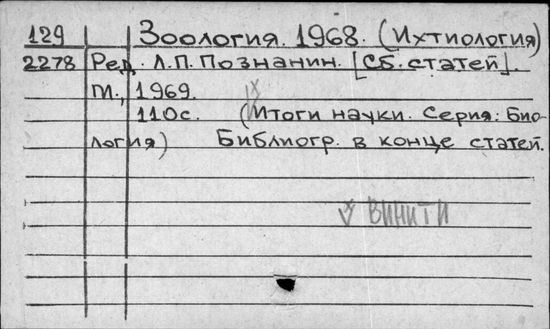 129 Зоология. 1968. (Ихтиология)
2278 Ред. Л.П. Познанин. [Сб. статей].
М., 1969.
110с. (Итоги науки. Серия: Био-
логия) Библиогр. в конце статей.
ВИНИТИ